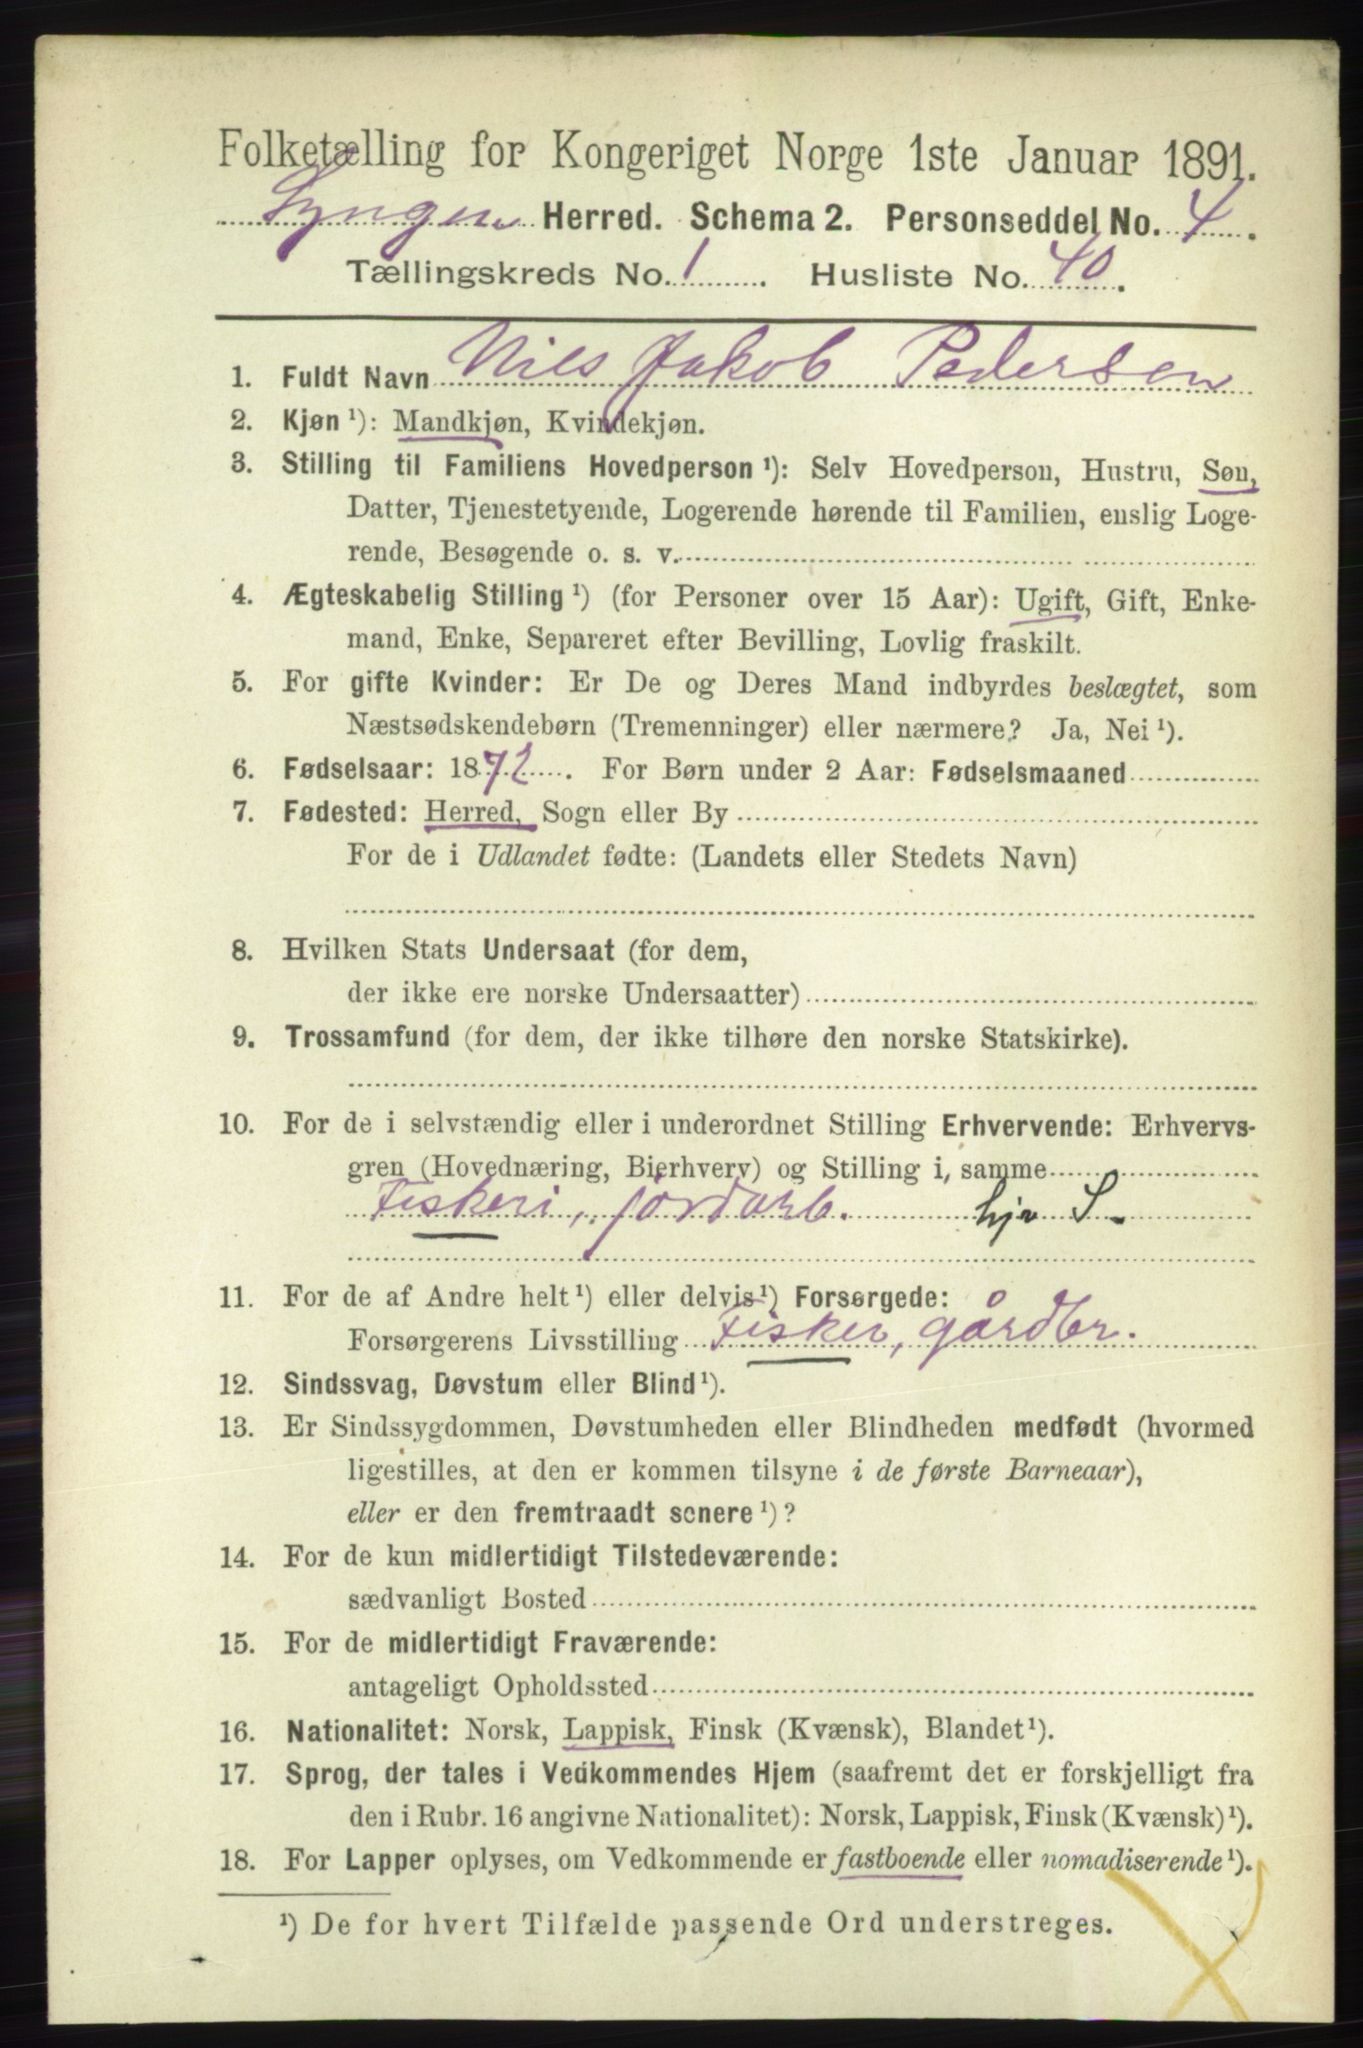 Folketælling for Kongeriget Norge 1ste Januar 1891.
Lyngen Herred. Schema 2. Personseddel No. 4.
Tællingskreds No. 1. Husliste No. 40.
1. Fuldt Navn Nils Jakob Pedersen
2. Kjøn ¹): Mandkjøn, Kvindekjøn.
3. Stilling til Familiens Hovedperson ¹): Selv Hovedperson, Hustru, Søn,
Datter, Tjenestetyende, Logerende hørende til Familien, enslig Loge-
rende, Besøgende o. s. v.
4. Ægteskabelig Stilling ¹) (for Personer over 15 Aar): Ugift, Gift, Enke-
mand, Enke, Separeret efter Bevilling, Lovlig fraskilt.
5. For gifte Kvinder: Er De og Deres Mand indbyrdes beslægtet, som
Næstsødskendebørn (Tremenninger) eller nærmere? Ja, Nei ¹).
6. Fødselsaar: 1872. For Børn under 2 Aar: Fødselsmaaned
7. Fødested: Herred, Sogn eller By
For de i Udlandet fødte: (Landets eller Stedets Navn)
8. Hvilken Stats Undersaat (for dem,
der ikke ere norske Undersaatter)
9. Trossamfund (for dem, der ikke tilhøre den norske Statskirke).
10. For de i selvstændig eller i underordnet Stilling Erhvervende: Erhvervs-
gren (Hovednæring, Bierhverv) og Stilling i samme
Fiskeri, jordarb. hjv S.
11. For de af Andre helt ¹) eller delvis ¹) Forsørgede:
Forsørgerens Livsstilling Fisker, gårdbr.
12. Sindssvag, Døvstum eller Blind ¹).
13. Er Sindssygdommen, Døvstumheden eller Blindheden medfødt (hvormed
ligestilles, at den er kommen tilsyne i de første Barneaar),
eller er den fremtraadt senere ¹)?
14. For de kun midlertidigt Tilstedeværende:
sædvanligt Bosted
15. For de midlertidigt Fraværende:
antageligt Opholdssted
16. Nationalitet: Norsk, Lappisk, Finsk (Kvænsk), Blandet ¹).
17. Sprog, der tales i Vedkommendes Hjem (saafremt det er forskjelligt fra
den i Rubr. 16 angivne Nationalitet): Norsk, Lappisk, Finsk (Kvænsk) ¹).
18. For Lapper oplyses, om Vedkommende er fastboende eller nomadiserende ¹).
¹) De for hvert Tilfælde passende Ord understreges.